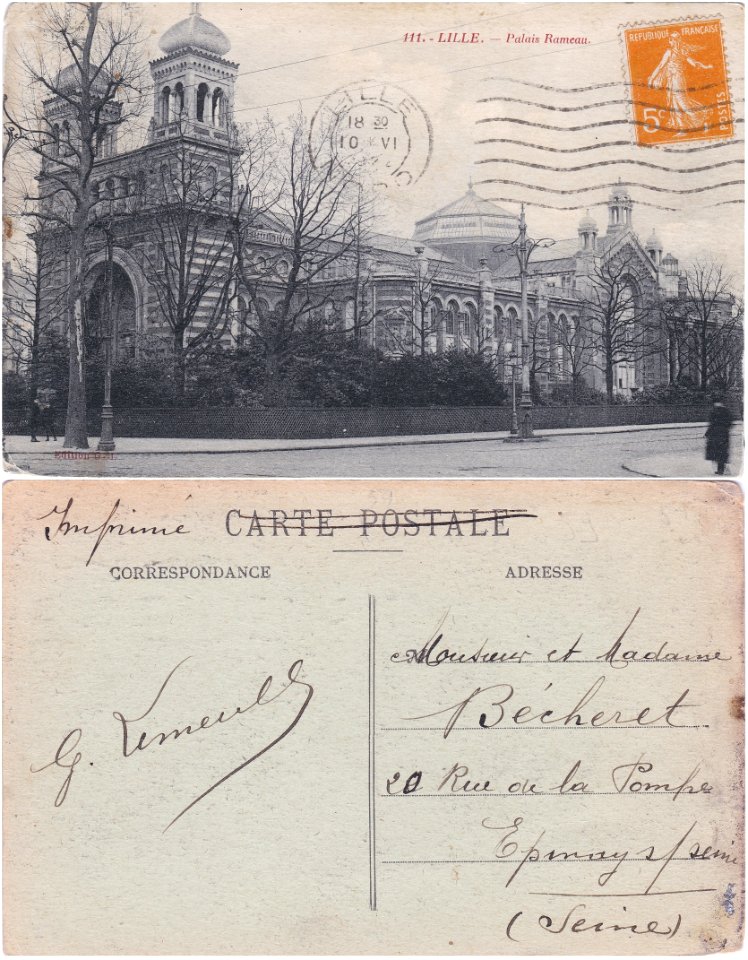 111. - LILLE. — Palais Rameau.
REPUBLIQUE FRANÇAISE
5c
POSTES
LILLE
18 30
10 VI
Imprimé CARTE POSTALE
CORRESPONDANCE
ADRESSE
Monsieur et Madame
Bécheret
20 Rue de la Pompe
Epinay s/seine
(Seine)
G.